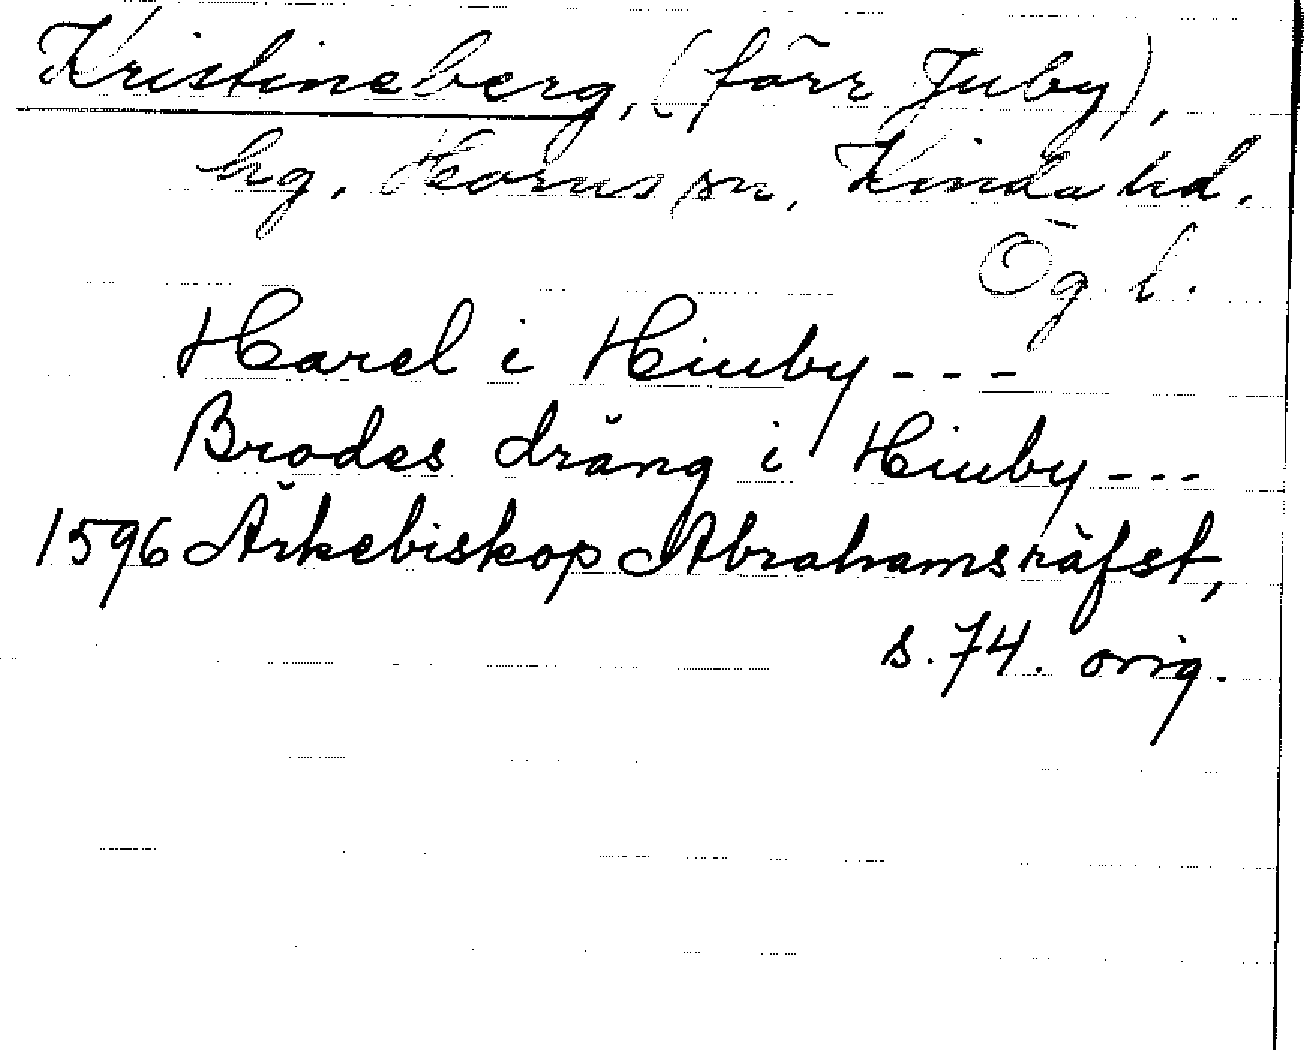 Kristineberg, (förr Juby),
hg, Horns sn, Kinda hd.
Ög l.
Harel i Hiuby - - -
Brodes dräng i Hiuby - - -
1596 Ärkebiskop Abrahams räfst,
s. 74. orig.